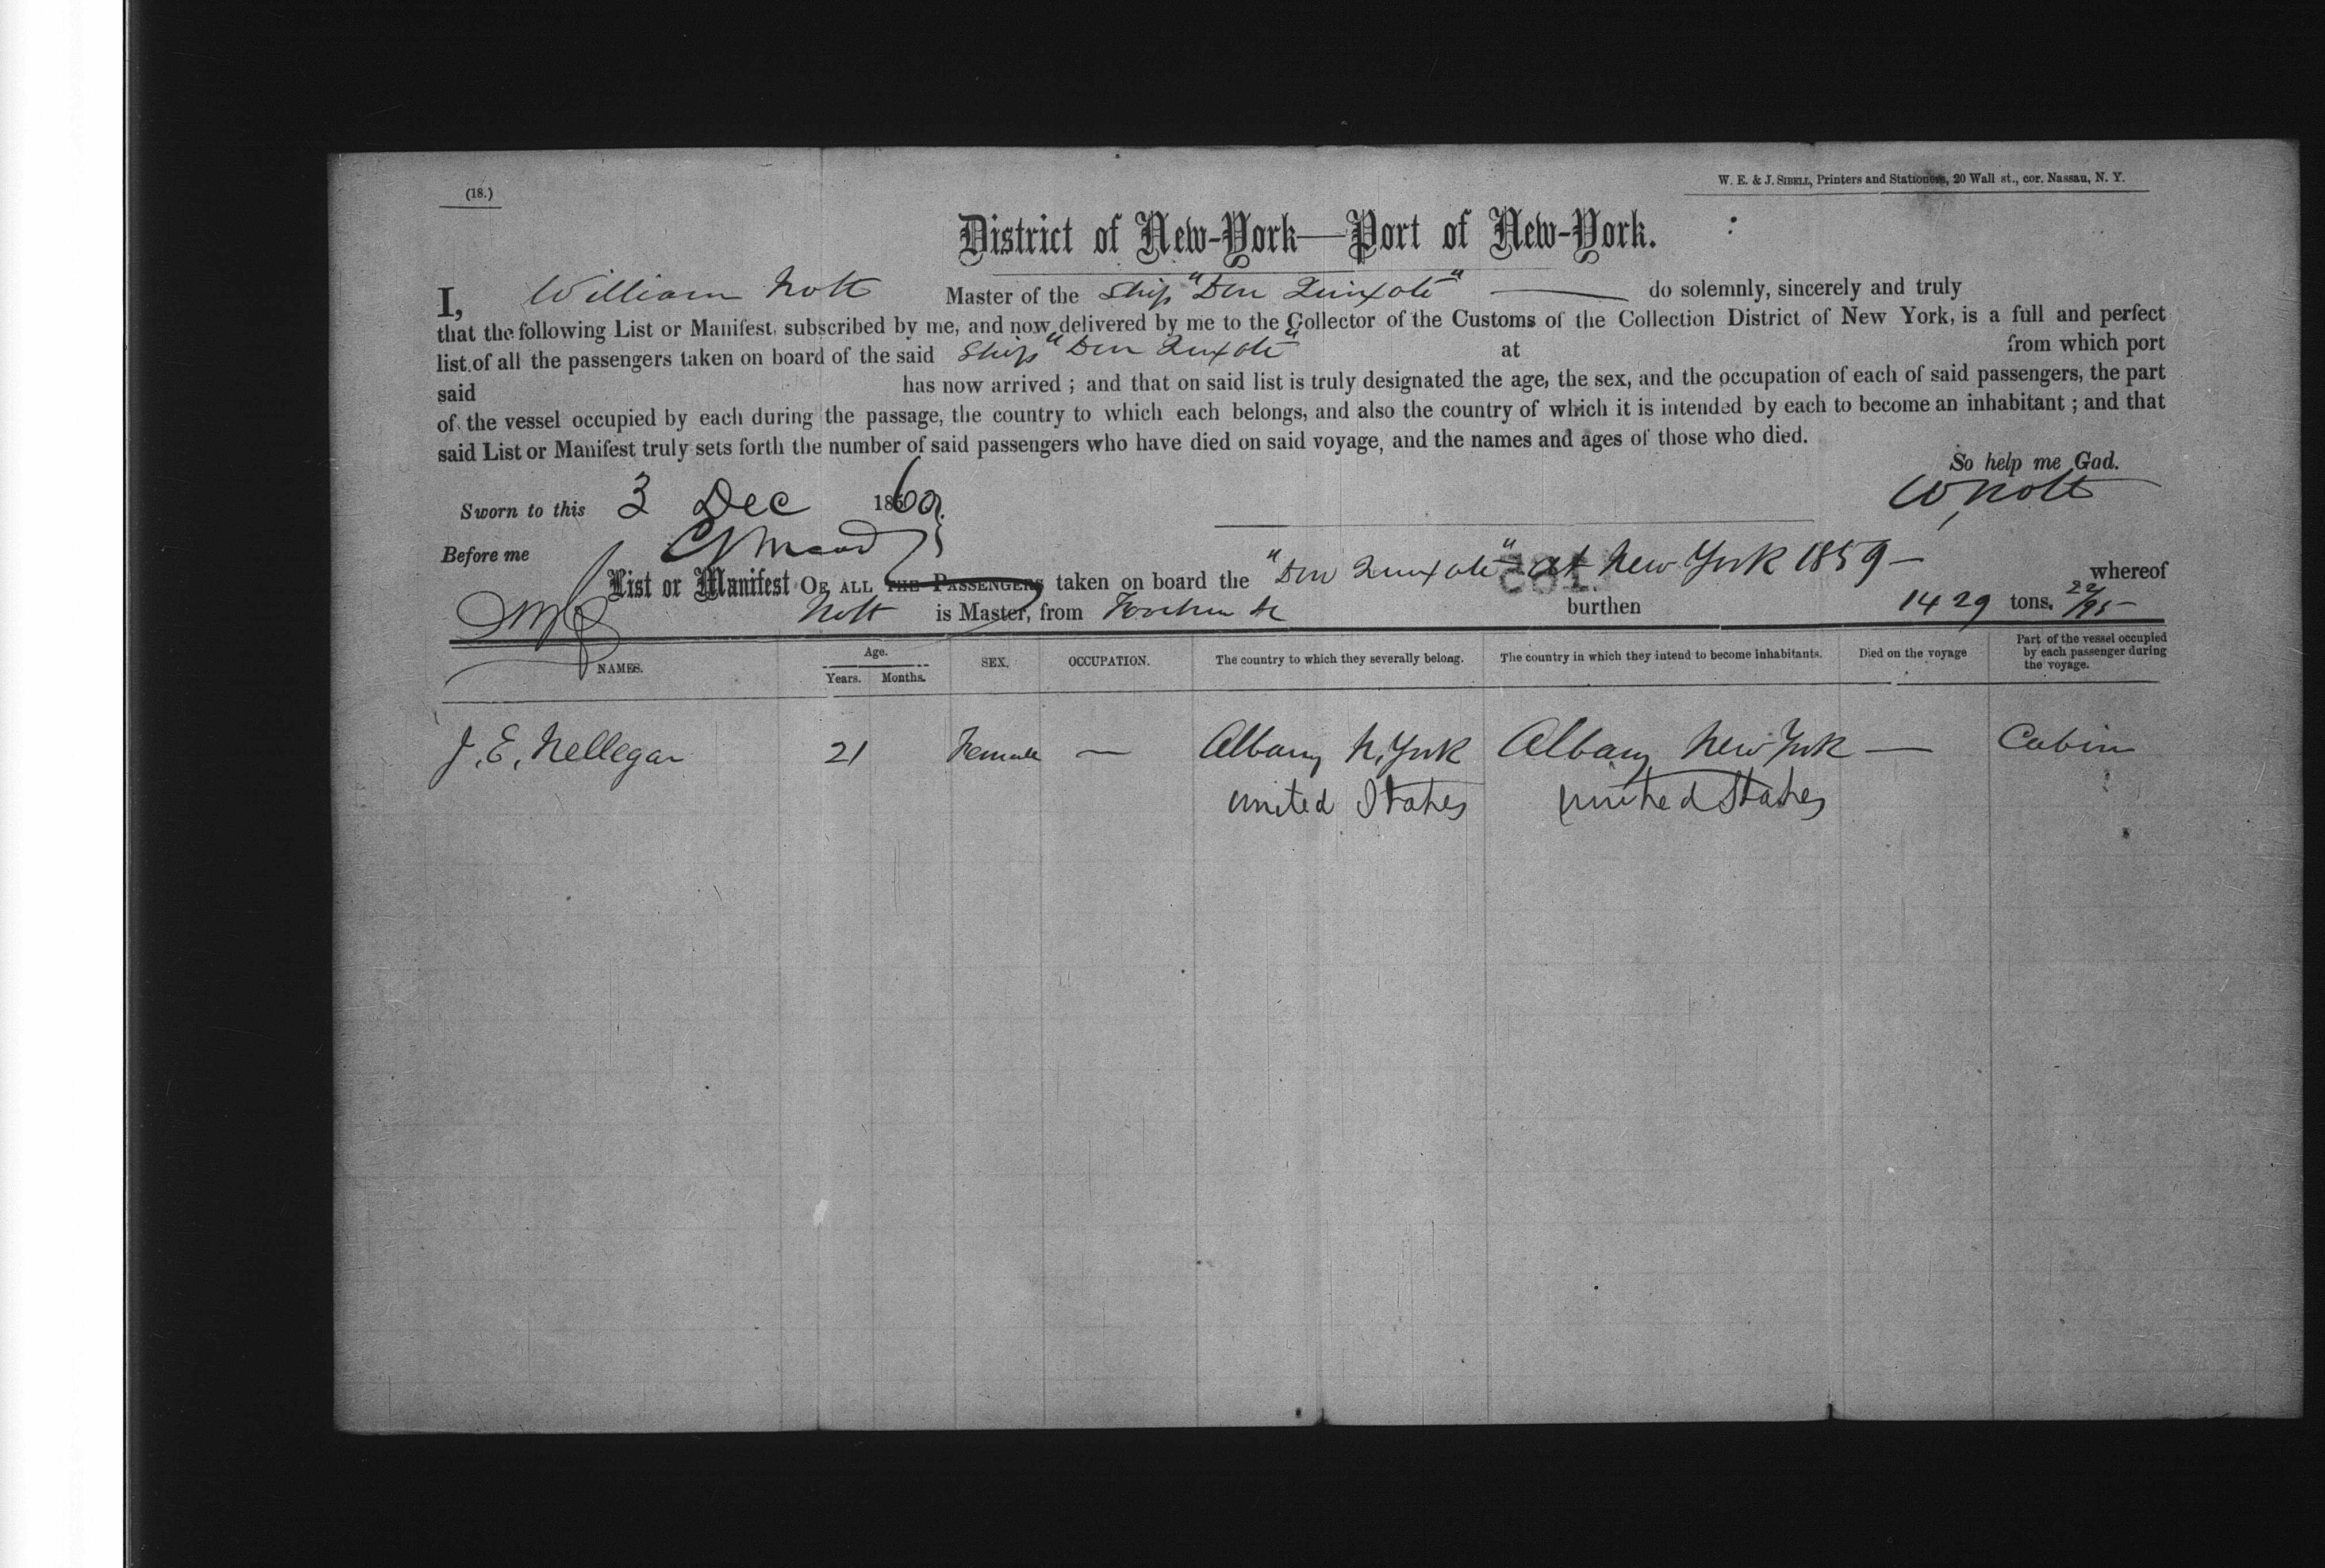 (18.)
W. E. & J. SIBELL, Printers and Stationers, 20 Wall st., cor. Nassau, N. Y.
District of New-York—Port of New-York.
I, William Nott Master of the Ship "Don Quixote" do solemnly, sincerely and truly
that the following List or Manifest, subscribed by me, and now delivered by me to the Collector of the Customs of the Collection District of New York, is a full and perfect
list of all the passengers taken on board of the said Ship "Don Quixote" at from which port
said has now arrived ; and that on said list is truly designated the age, the sex, and the occupation of each of said passengers, the part
of the vessel occupied by each during the passage, the country to which each belongs, and also the country of which it is intended by each to become an inhabitant ; and that
said List or Manifest truly sets forth the number of said passengers who have died on said voyage, and the names and ages of those who died.
So help me God.
W Nott
Sworn to this 3 Dec 1860.
Before me
List or Manifest OF ALL THE PASSENGERS taken on board the "Don Quixote" at New York 1859 — whereof
Nott is Master, from burthen 1429 tons. 22/95
NAMES. Age. Years. Months. SEX. OCCUPATION. The country to which they severally belong. The country in which they intend to become inhabitants. Died on the voyage Part of the vessel occupied by each passenger during the voyage.
J. E. Nellegar 21 Female — Albany N. York Albany New York — Cabin
United States United States